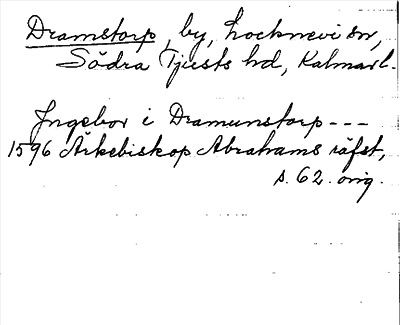 Dramstorp, by, Locknevi sn,
Södra Tjusts hd, Kalmar l.
Ingebor i Dramunstorp - - -
1596 Ärkebiskop Abrahams räfst,
s. 62. orig.